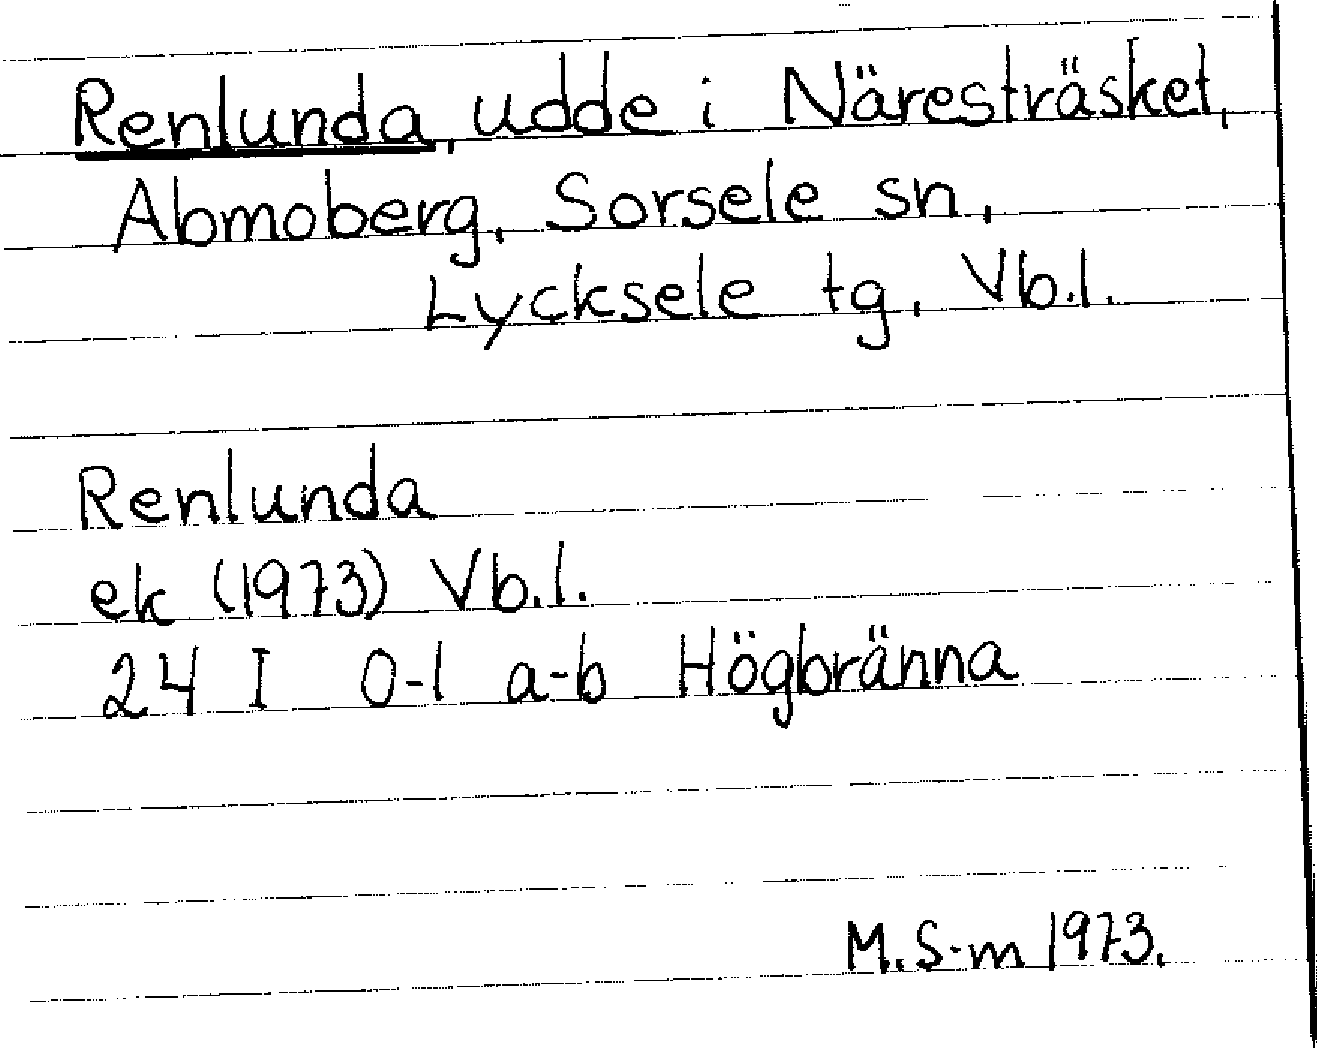 Renlunda, udde i Näresträsket,
Abmoberg, Sorsele sn,
Lycksele tg, Vb.l.
Renlunda
ek (1973) Vb.l.
24 I 0-1 a-b Högbränna
M.S-m 1973.